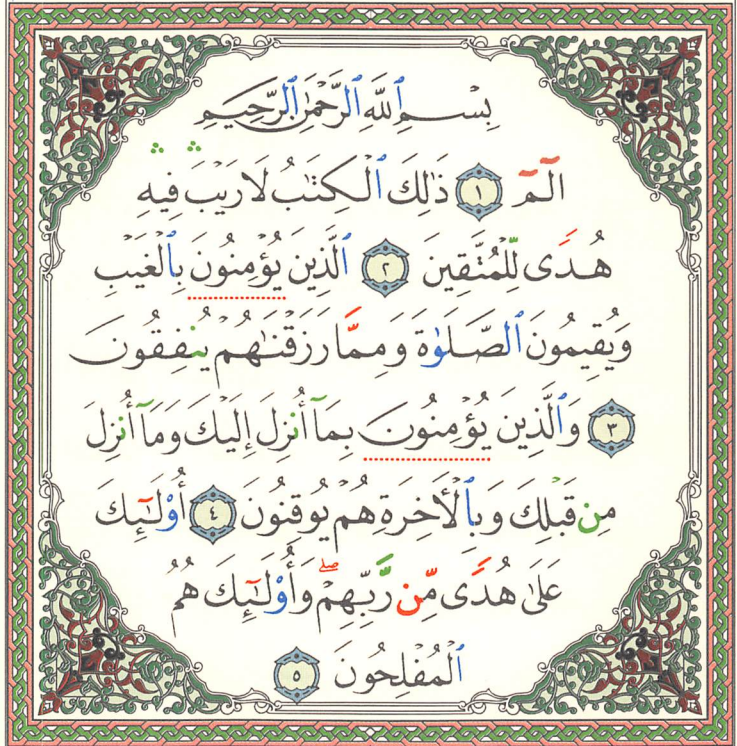 بِسْمِ ٱللَّهِ ٱلرَّحْمَٰنِ ٱلرَّحِيمِ
الٓمٓ ١ ذَٰلِكَ ٱلْكِتَٰبُ لَا رَيْبَ فِيهِ
هُدًى لِّلْمُتَّقِينَ ٢ ٱلَّذِينَ يُؤْمِنُونَ بِٱلْغَيْبِ
وَيُقِيمُونَ ٱلصَّلَوٰةَ وَمِمَّا رَزَقْنَٰهُمْ يُنفِقُونَ
٣ وَٱلَّذِينَ يُؤْمِنُونَ بِمَآ أُنزِلَ إِلَيْكَ وَمَآ أُنزِلَ
مِن قَبْلِكَ وَبِٱلْأَخِرَةِ هُمْ يُوقِنُونَ ٤ أُوْلَٰٓئِكَ
عَلَىٰ هُدًى مِّن رَّبِّهِمْ ۖ وَأُوْلَٰٓئِكَ هُمُ
ٱلْمُفْلِحُونَ ٥